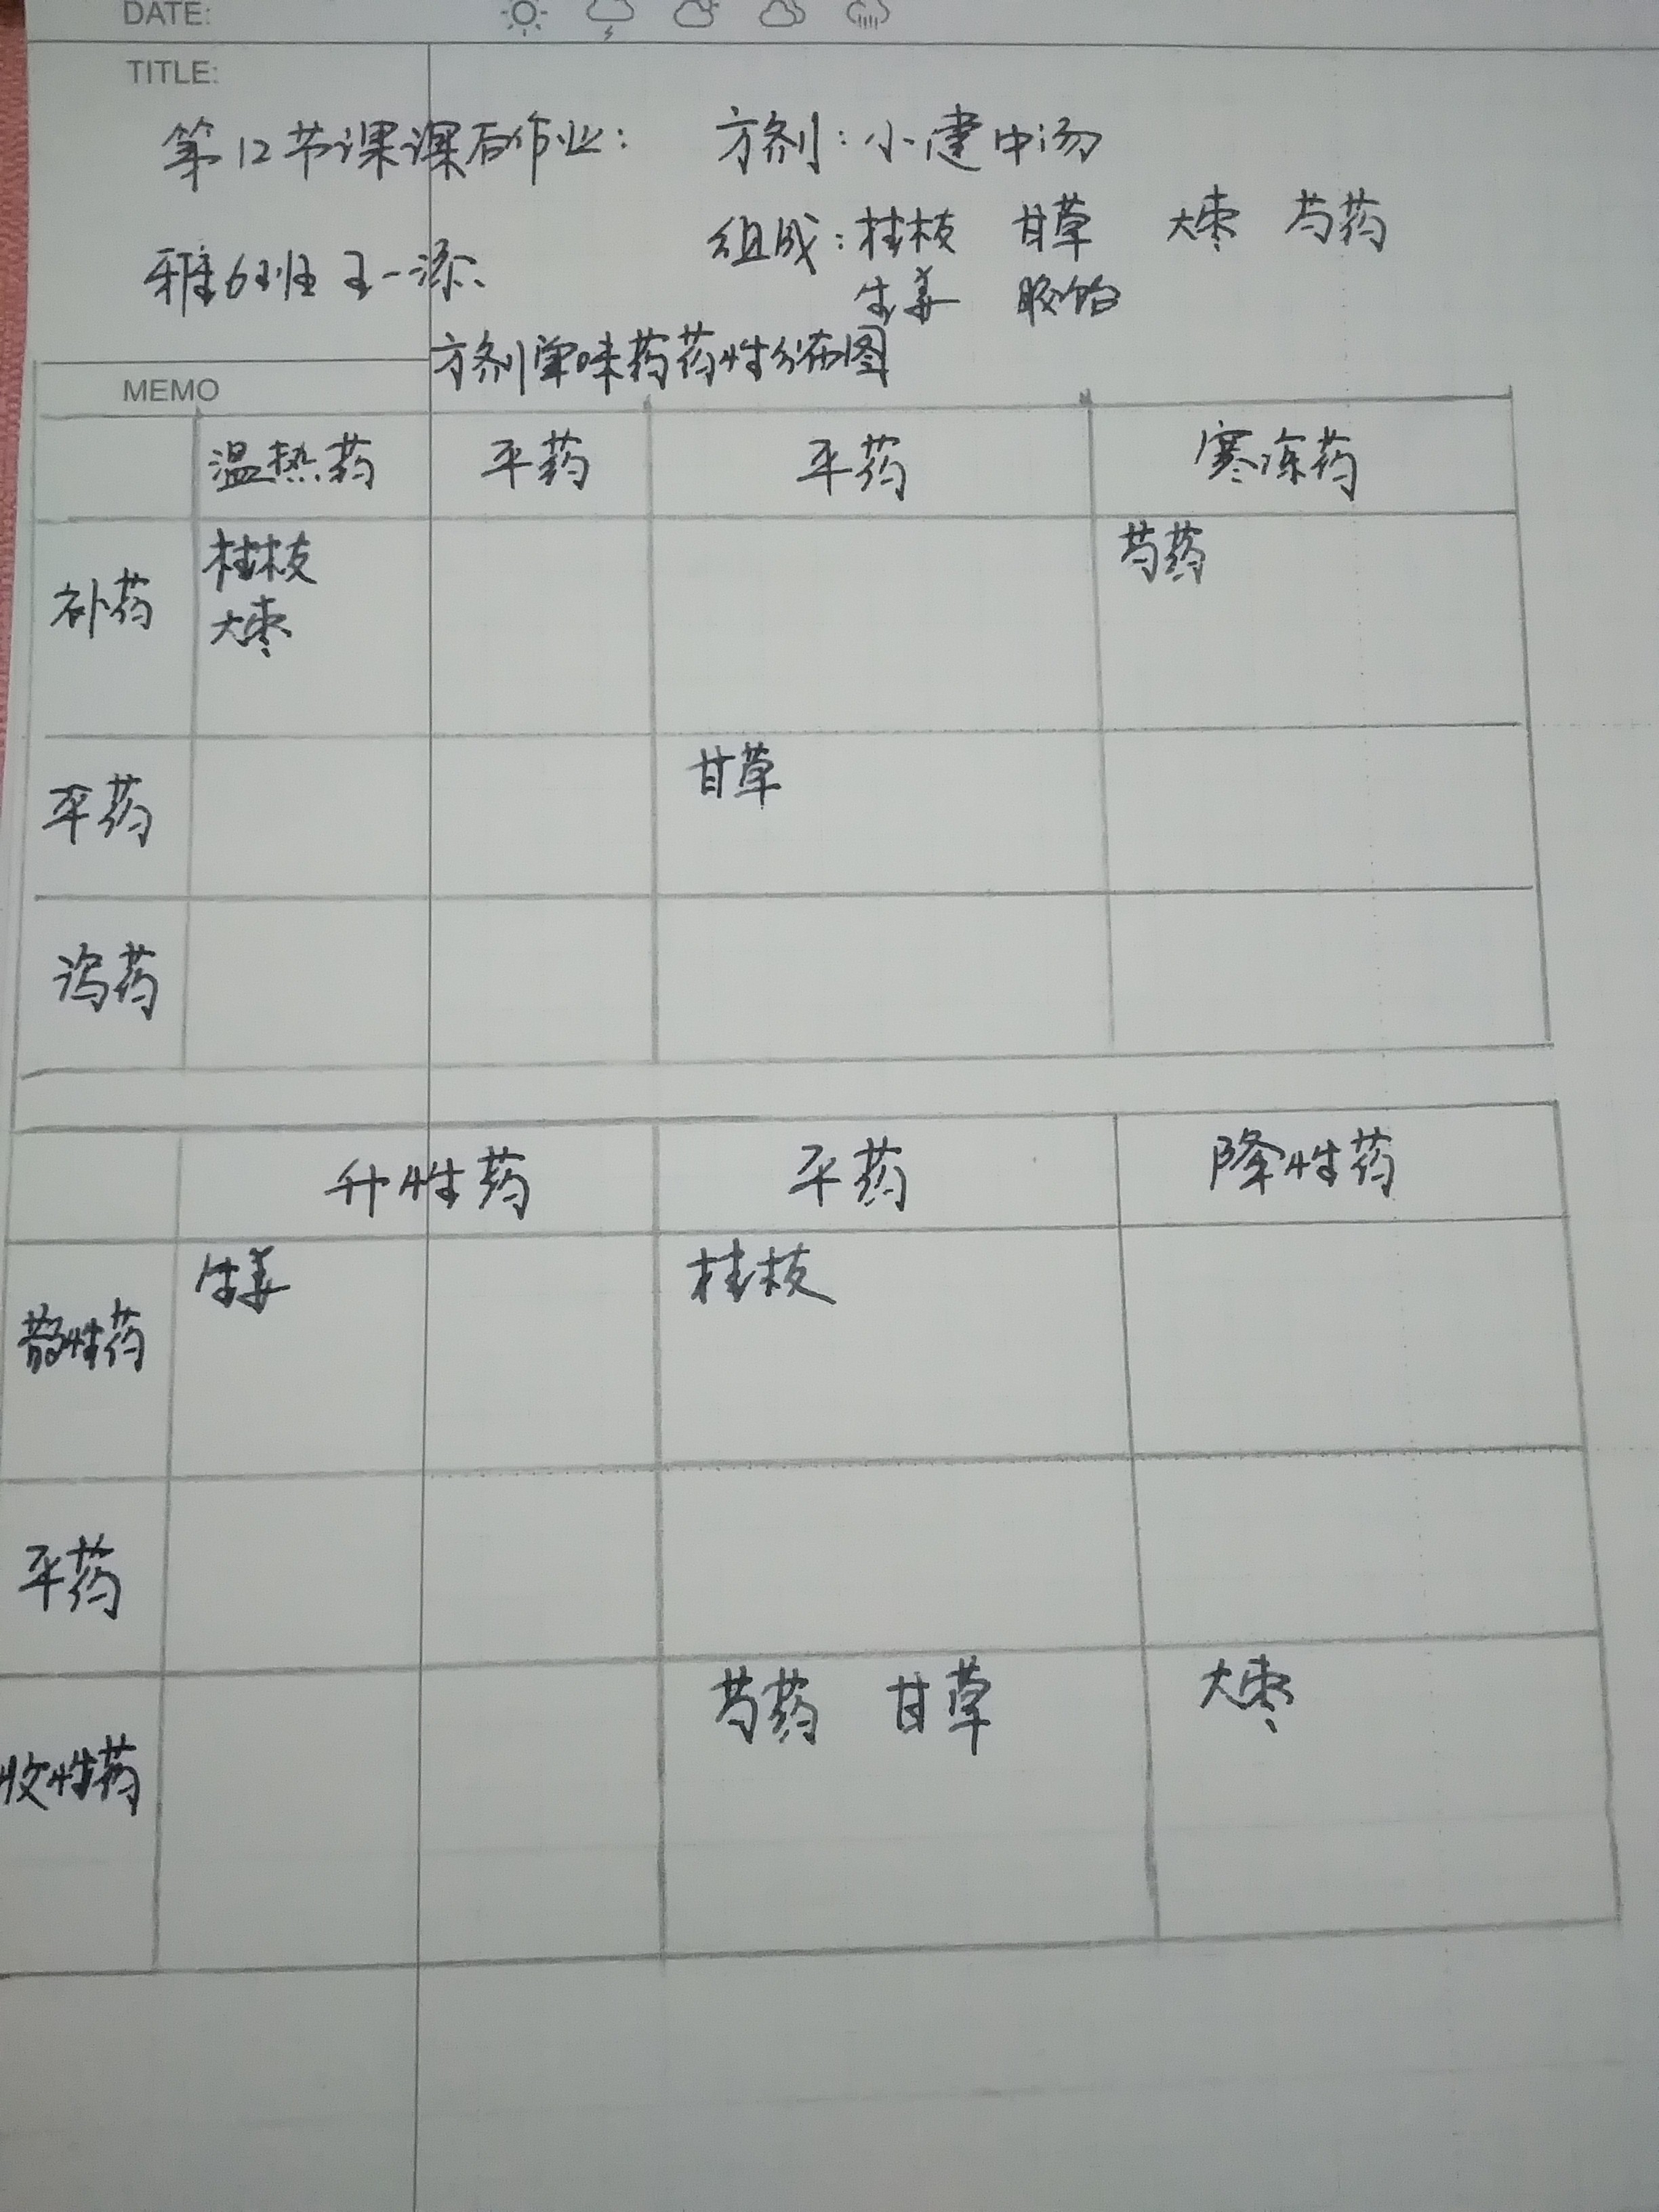 DATE:
TITLE:
第12节课课后作业： 方剂：小建中汤
组成：桂枝 甘草 大枣 芍药
雅6班 王一添
生姜 胶饴
方剂单味药药性分布图
MEMO
温热药 平药 平药 寒冻药
补药 桂枝 芍药
大枣
平药 甘草
泻药
升性药 平药 降性药
散性药 生姜 桂枝
平药
收性药 芍药 甘草 大枣